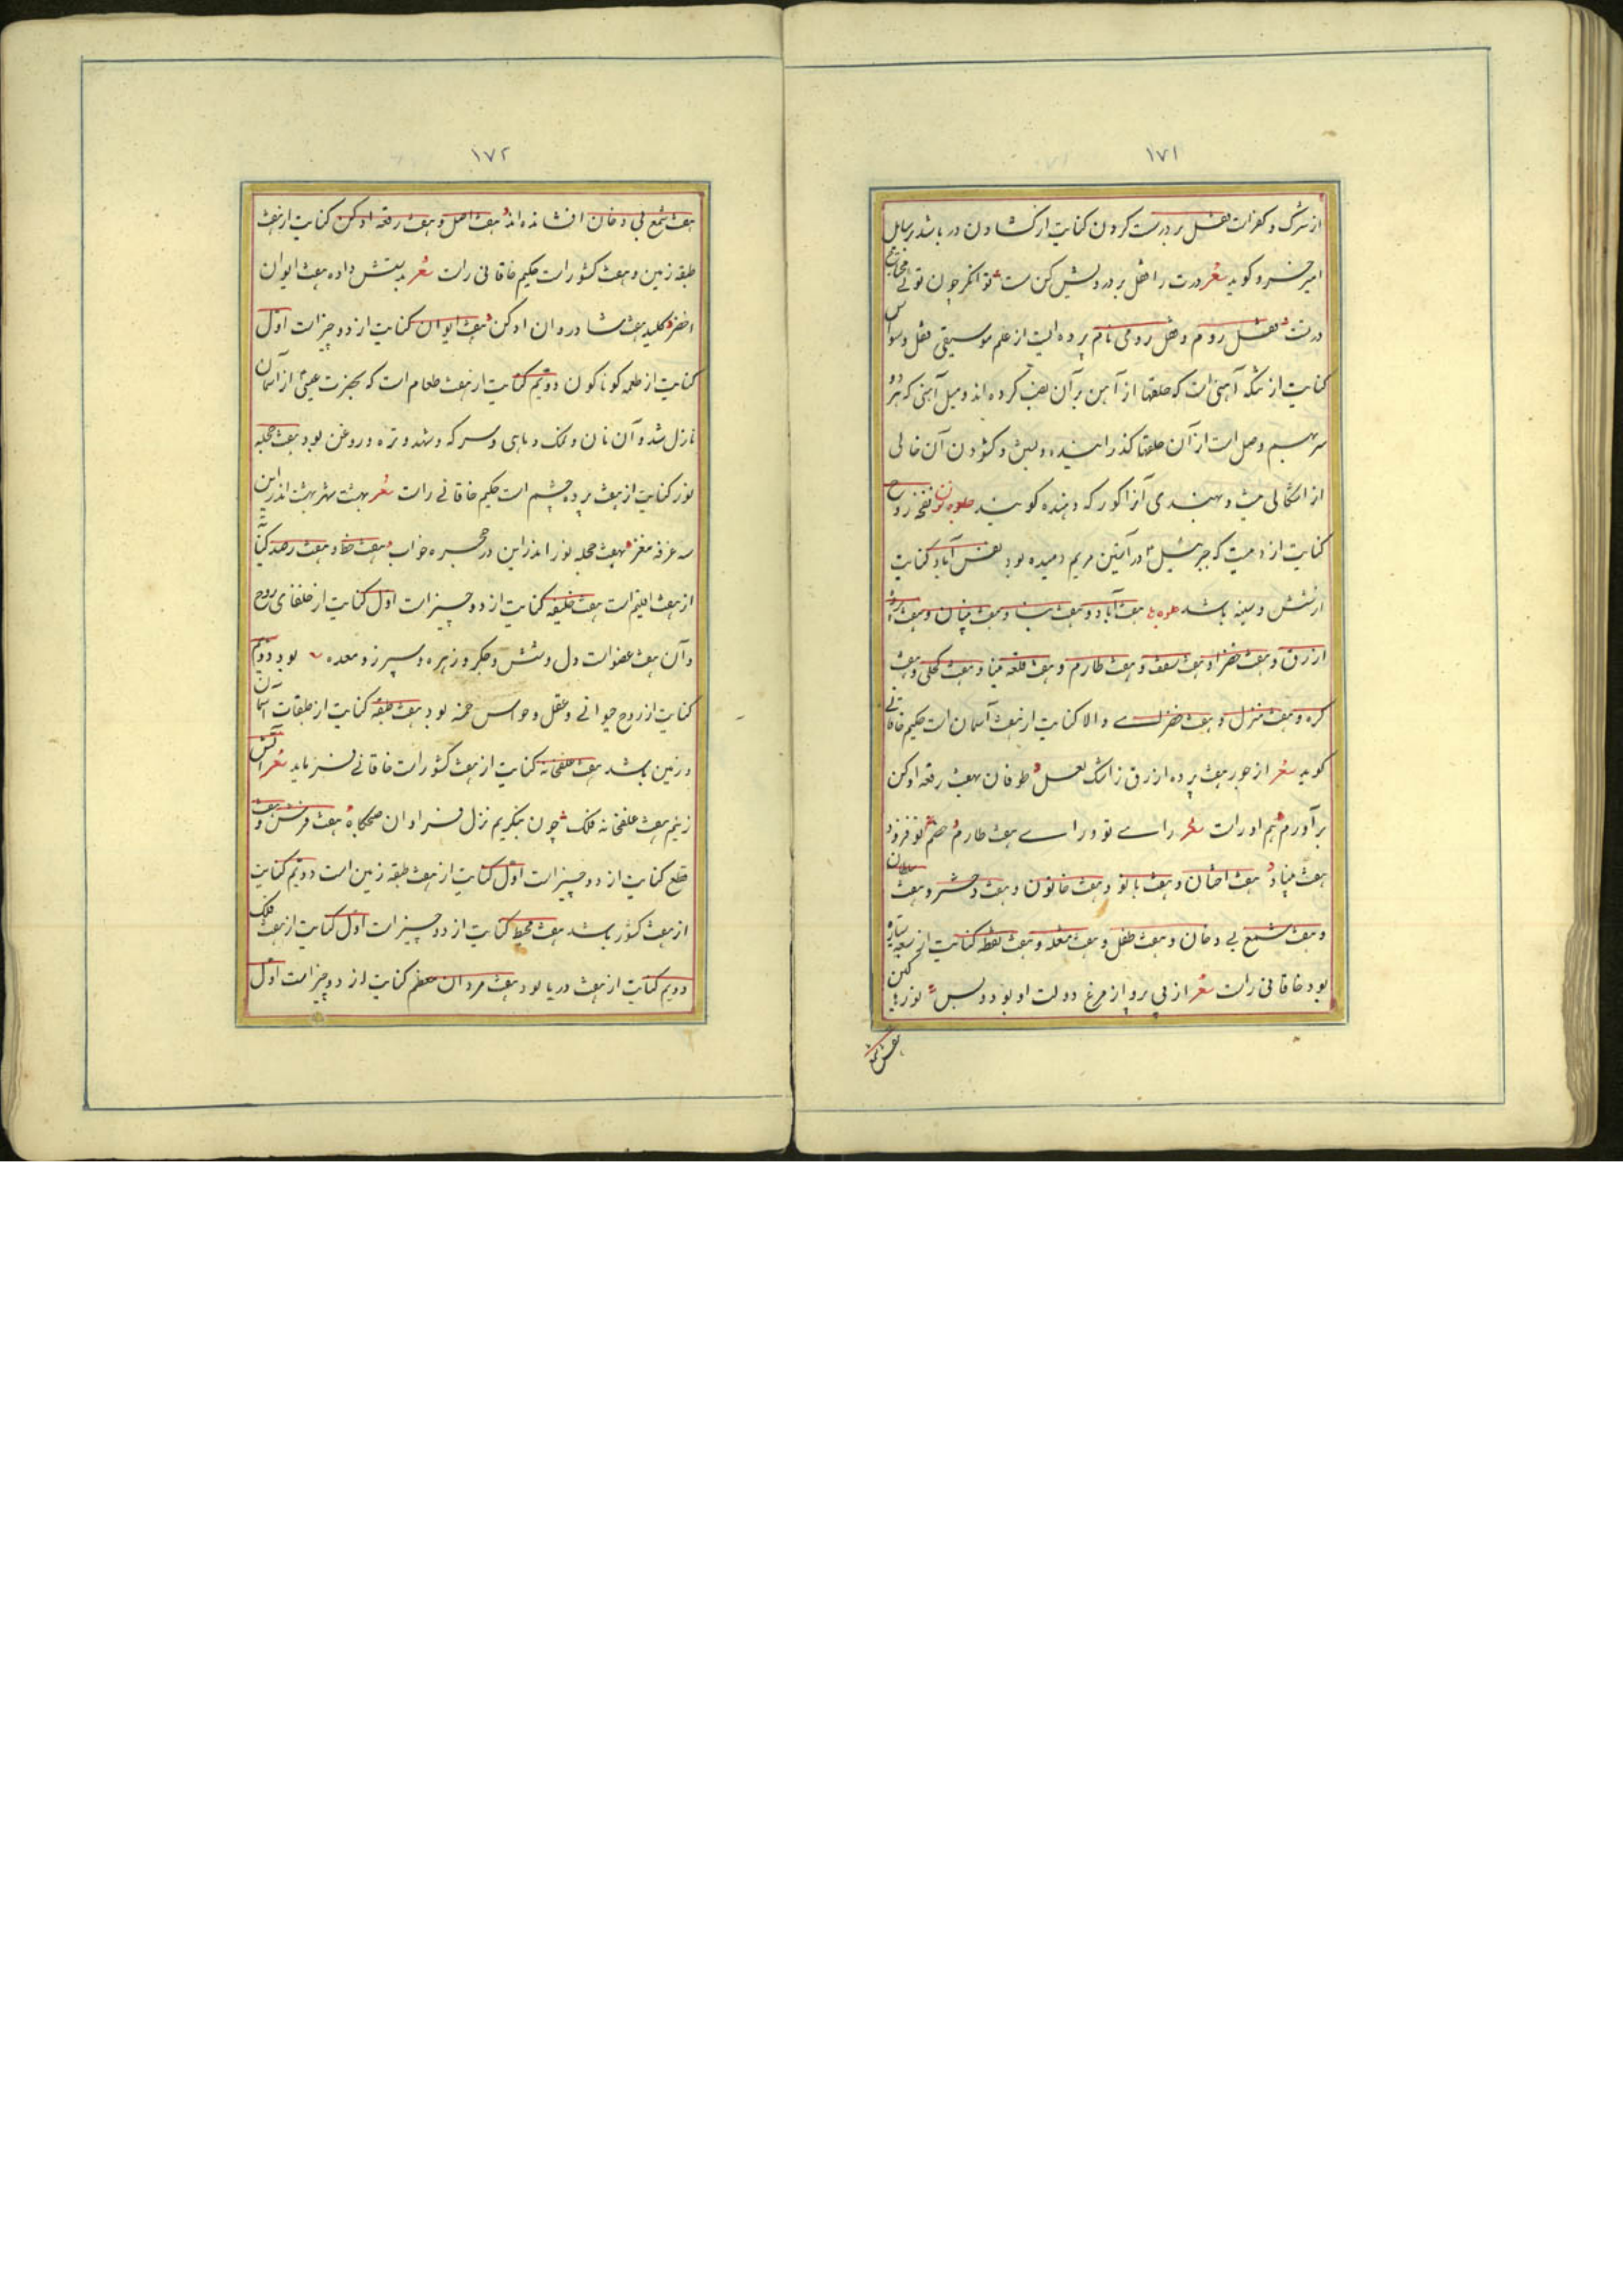 ۱۷۱
از شرک و کفر است قفل بر در است کردن کنایت از کشادن در باشد
امیر خسرو گوید شعر درت را قفل بر درویش کن ست توانگر چون توئی محتاج
در تست قفل روم و قفل رومی نام پرده ایست از علم موسیقی قفل وسواس
کنایت از تنکه آهنی است که حلقها از آهن بر آن نصب کرده اند و میل آهنی که هر دو
سر بهم وصل است از آن حلقها گذرانیده و بستن و کشودن آن خالی
از اشکالی نیست و بهندی آنرا کورکه دهنده گویند جلوه نون نفخه روح
کنایت از دمیست که جبرئیل در آستین مریم دمیده بود نفس آباد کنایت
از شش و سینه باشد جلوه ها هفت آباد و هفت بنا و هفت بنیان و هفت پرده
ازرق و هفت خضرا و هفت سقف و هفت طارم و هفت قلعه مینا و هفت کحلی و هفت
کره و هفت منزل و هفت خضرای والا کنایت از هفت آسمان است حکیم خاقانی
گوید شعر از جور هفت پرده ازرق ز اشک لعل طوفان بهفت رقعه ادکن
برآورم هم او راست شعر رای تو ورای هفت طارم خصم تو فرود
هفت بنیاد هفت اختان و هفت بانو و هفت خاتون و هفت دختر و هفت سلطان
و هفت شمع بی دخان و هفت طفل و هفت مقله و هفت نقطه کنایت از سبعه سیاره
بود خاقانی راست شعر از پی پرواز مرغ دولت او بود و بس نورها کین
هفت شمع
۱۷۲
هفت شمع بی دخان افشانده اند هفت اصل و هفت رقعه ادکن کنایت از هفت
طبقه زمین و هفت کشور است حکیم خاقانی راست شعر بدستش داده هفت ایوان
اخضر کلید هفت شادروان ادکن هفت ایوان کنایت از دو چیز است اول
کنایت از طعمه گوناگون دویم کنایت از هفت طعام است که بحضرت عیسی از آسمان
نازل شد و آن نان و نمک و ماهی و سرکه و شهد و تره و روغن بود هفت حجله
نور کنایت از هفت پرده چشم است حکیم خاقانی راست شعر بهشت شهر بهشت اندرین
سه غرفه مغز بهفت حجله نور اندراین در حجره خواب هفت خط و هفت رصد کنایت
از هفت اقلیم است هفت خلیفه کنایت از دو چیز است اول کنایت از خلفای روح
و آن هفت عضو است دل و شش و جگر و زهره و سپرز و معده بود دویم
کنایت از روح حیوانی و عقل و حواس خمسه بود هفت طبقه کنایت از طبقات آسمان
و زمین باشد هفت علفخانه کنایت از هفت کشور است خاقانی فرماید شعر آتش
زنیم هفت علفخانه فلک چون بنگریم نزل فراوان صبحگاه هفت فرش و هفت
قلع کنایت از دو چیز است اول کنایت از هفت طبقه زمین است دویم کنایت
از هفت کشور باشد هفت محیط کنایت از دو چیز است اول کنایت از هفت فلک
دویم کنایت از هفت دریا بود هفت مردان معظم کنایت از دو چیز است اول